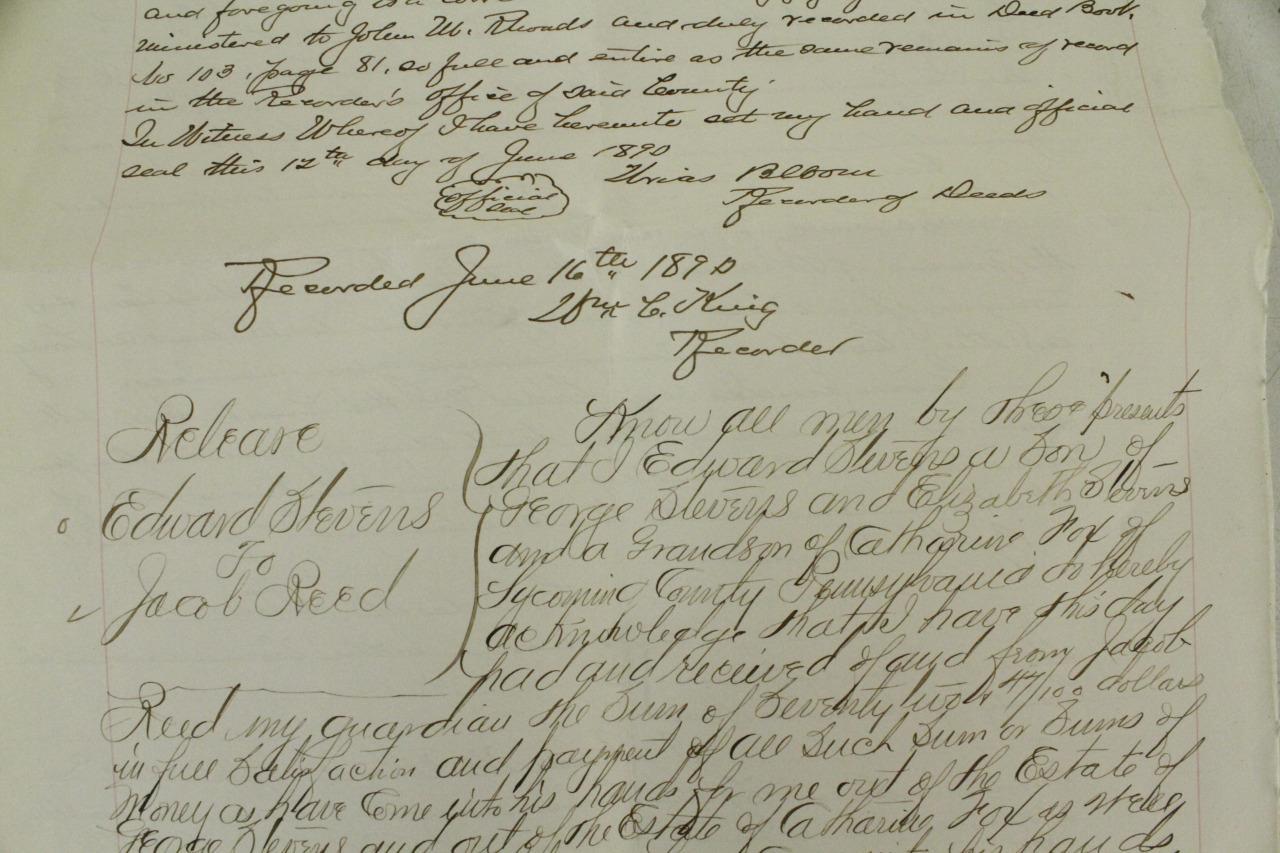 and foregoing is a
ministered to John M. Rhoads and duly recorded in Deed Book
No 103, page 81, so full and entire as the same remains of record
in the Recorder's office of said County
In Witness Whereof I have hereunto set my hand and official
seal this 12th day of June 1890
Urias Bloom
Official Seal
Recorder of Deeds
Recorded June 16th 1890
Wm C. King
Recorder
Release
Edward Stevens
To
Jacob Reed
Know all men by these presents
that I Edward Stevens a Son of
George Stevens and Elizabeth Stevens
and a Grandson of Catharine Fox of
Lycoming County Pennsylvania do hereby
acknowledge that I have this day
had and received of and from Jacob
Reed my guardian the Sum of Seventy two & 47/100 dollars
in full Satisfaction and payment of all Such Sum or Sums of
Money as have Come into his hands for me out of the Estate of
George Stevens and out of the Estate of Catharine Fox as well
his hands